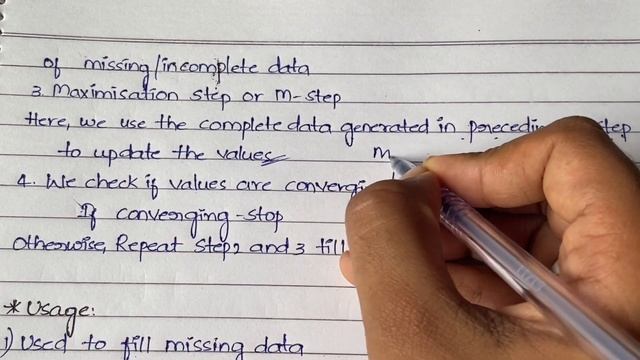 of missing/incomplete data
3. Maximisation step or M-step
Here, we use the complete data generated in step
to update the values
m
4. We check if values are
If converging - stop
Otherwise, Repeat step 2 and 3 till
* Usage:
1) Used to fill missing data